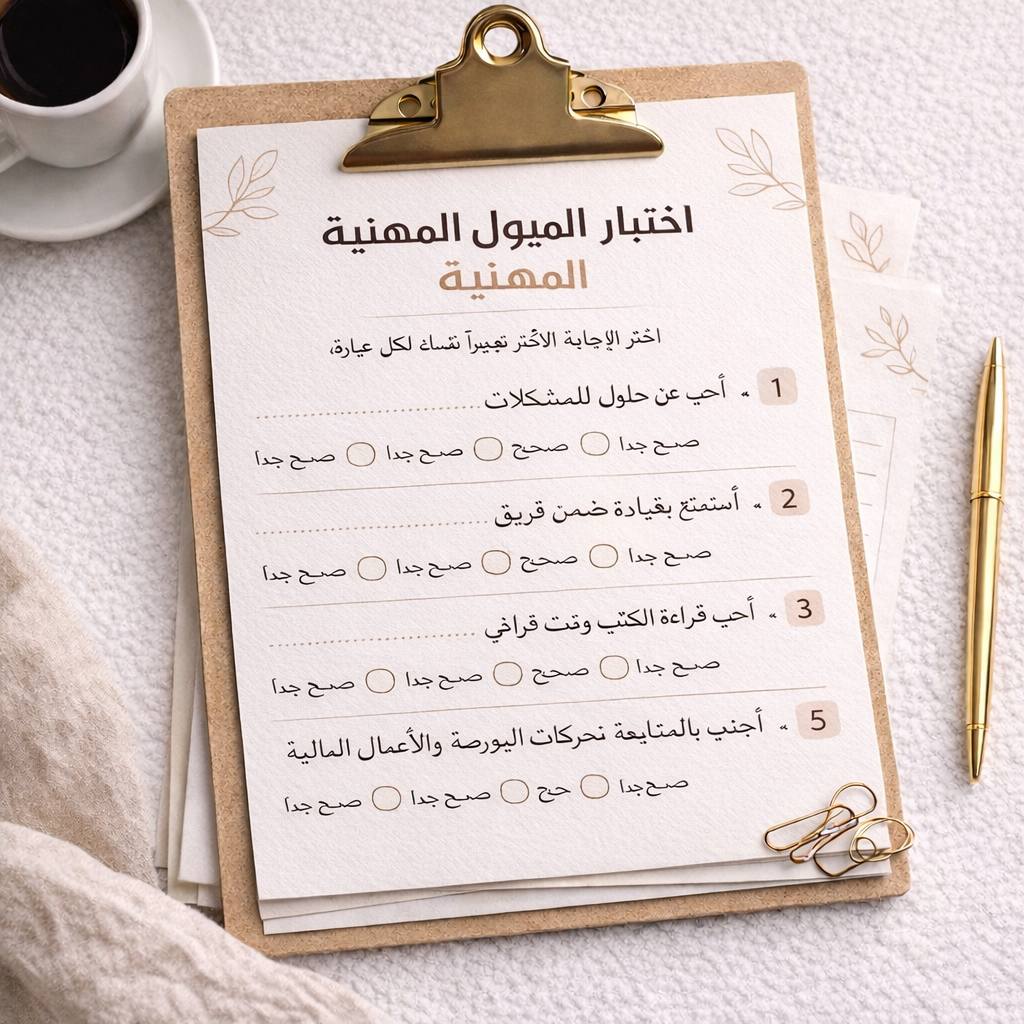 اختبار الميول المهنية
المهنية
اختر الإجابة الأكثر تعبيراً نفسك لكل عبارة،
1 » أحب عن حلول للمشكلات
صح جدا صحح صح جدا صح جدا
2 » أستمتع بقيادة ضمن فريق
صح جدا صحح صح جدا صح جدا
3 » أحب قراءة الكتب وقت فراغي
صح جدا صحح صح جدا صح جدا
5 » أجنب بالمتابعة تحركات البورصة والأعمال المالية
صح جدا حج صح جدا صح جدا